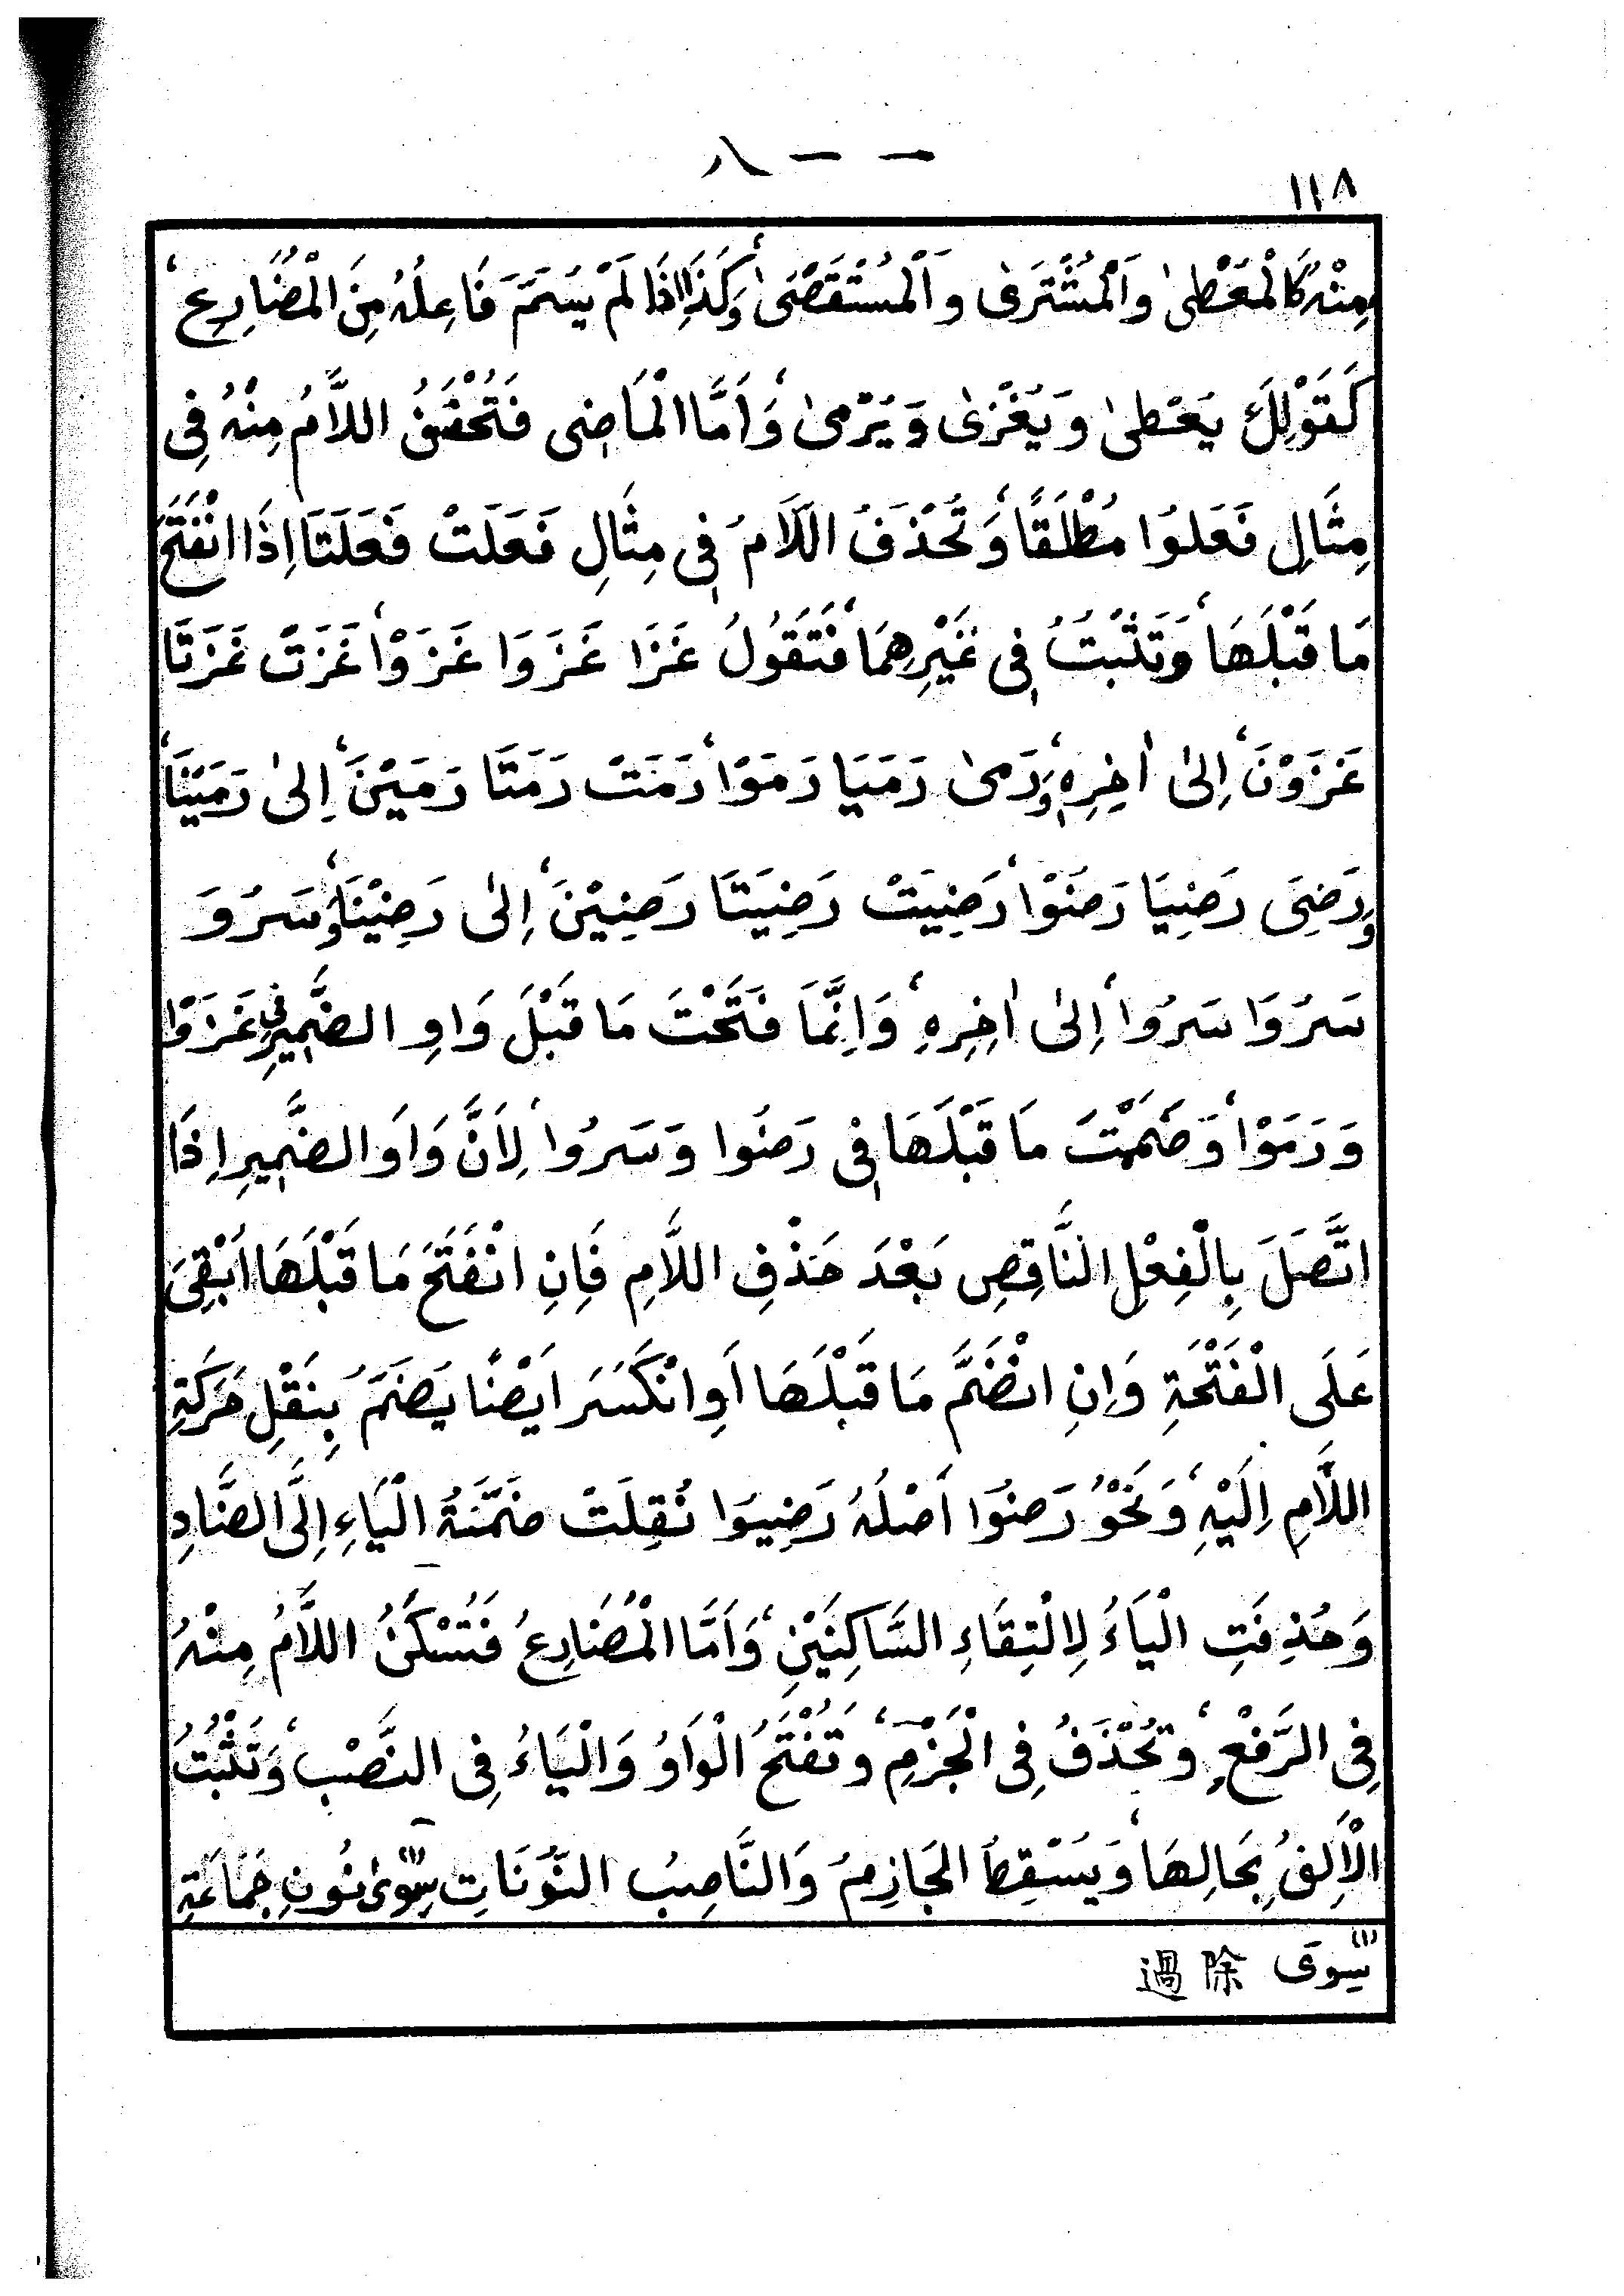 ١١٨
مِنْهُ كَالْمُعْطٰى وَالْمُشْتَرٰى وَالْمُسْتَقْصٰى، وَكَذَا اِذَا لَمْ يُسَمَّ فَاعِلُهُ مِنَ الْمُضَارِعِ،
كَقَوْلِكَ يُعْطٰى وَيُغْزٰى وَيُرْمٰى، وَاَمَّا الْمَاضِى فَتُحْذَفُ اللَّامُ مِنْهُ فِى
مِثَالِ فَعَلُوا مُطْلَقًا، وَتُحْذَفُ اللَّامُ فِى مِثَالِ فَعَلَتْ فَعَلَتَا اِذَا انْفَتَحَ
مَا قَبْلَهَا، وَتَثْبُتُ فِى غَيْرِهِمَا، فَتَقُولُ غَزَا غَزَوَا غَزَوْا، غَزَتْ غَزَتَا
غَزَوْنَ، اِلٰى اٰخِرِهِ، وَرَمٰى رَمَيَا رَمَوْا، رَمَتْ رَمَتَا رَمَيْنَ، اِلٰى رَمَيْنَا،
وَرَضِىَ رَضِيَا رَضُوْا، رَضِيَتْ رَضِيَتَا رَضِيْنَ، اِلٰى رَضِيْنَا، وَسَرُوَ
سَرُوَا سَرُوا، اِلٰى اٰخِرِهِ، وَاِنَّمَا فَتَحْتَ مَا قَبْلَ وَاوِ الضَّمِيرِ فِى غَزَوْا
وَرَمَوْا، وَضَمَمْتَ مَا قَبْلَهَا فِى رَضُوا وَسَرُوا، لِاَنَّ وَاوَ الضَّمِيرِ اِذَا
اتَّصَلَ بِالْفِعْلِ النَّاقِصِ بَعْدَ حَذْفِ اللَّامِ فَاِنِ انْفَتَحَ مَا قَبْلَهَا اَبْقِىَ
عَلَى الْفَتْحَةِ وَاِنِ انْضَمَّ مَا قَبْلَهَا اَوِ انْكَسَرَ اَيْضًا يُضَمُّ بِنَقْلِ حَرَكَةِ
اللَّامِ اِلَيْهِ، وَنَحْوُ رَضُوا اَصْلُهُ رَضِيُوا نُقِلَتْ ضَمَّةُ الْيَاءِ اِلَى الضَّادِ
وَحُذِفَتِ الْيَاءُ لِالْتِقَاءِ السَّاكِنَيْنِ، وَاَمَّا الْمُضَارِعُ فَتُسْكَنُ اللَّامُ مِنْهُ
فِى الرَّفْعِ، وَتُحْذَفُ فِى الْجَزْمِ، وَتُفْتَحُ الْوَاوُ وَالْيَاءُ فِى النَّصْبِ، وَتَثْبُتُ
الْاَلِفُ بِحَالِهَا، وَيُسْقِطُ الْجَازِمُ وَالنَّاصِبُ النُّونَاتِ سِوٰى (١) نُونِ جَمَاعَةِ
(١) سِوَى 除過